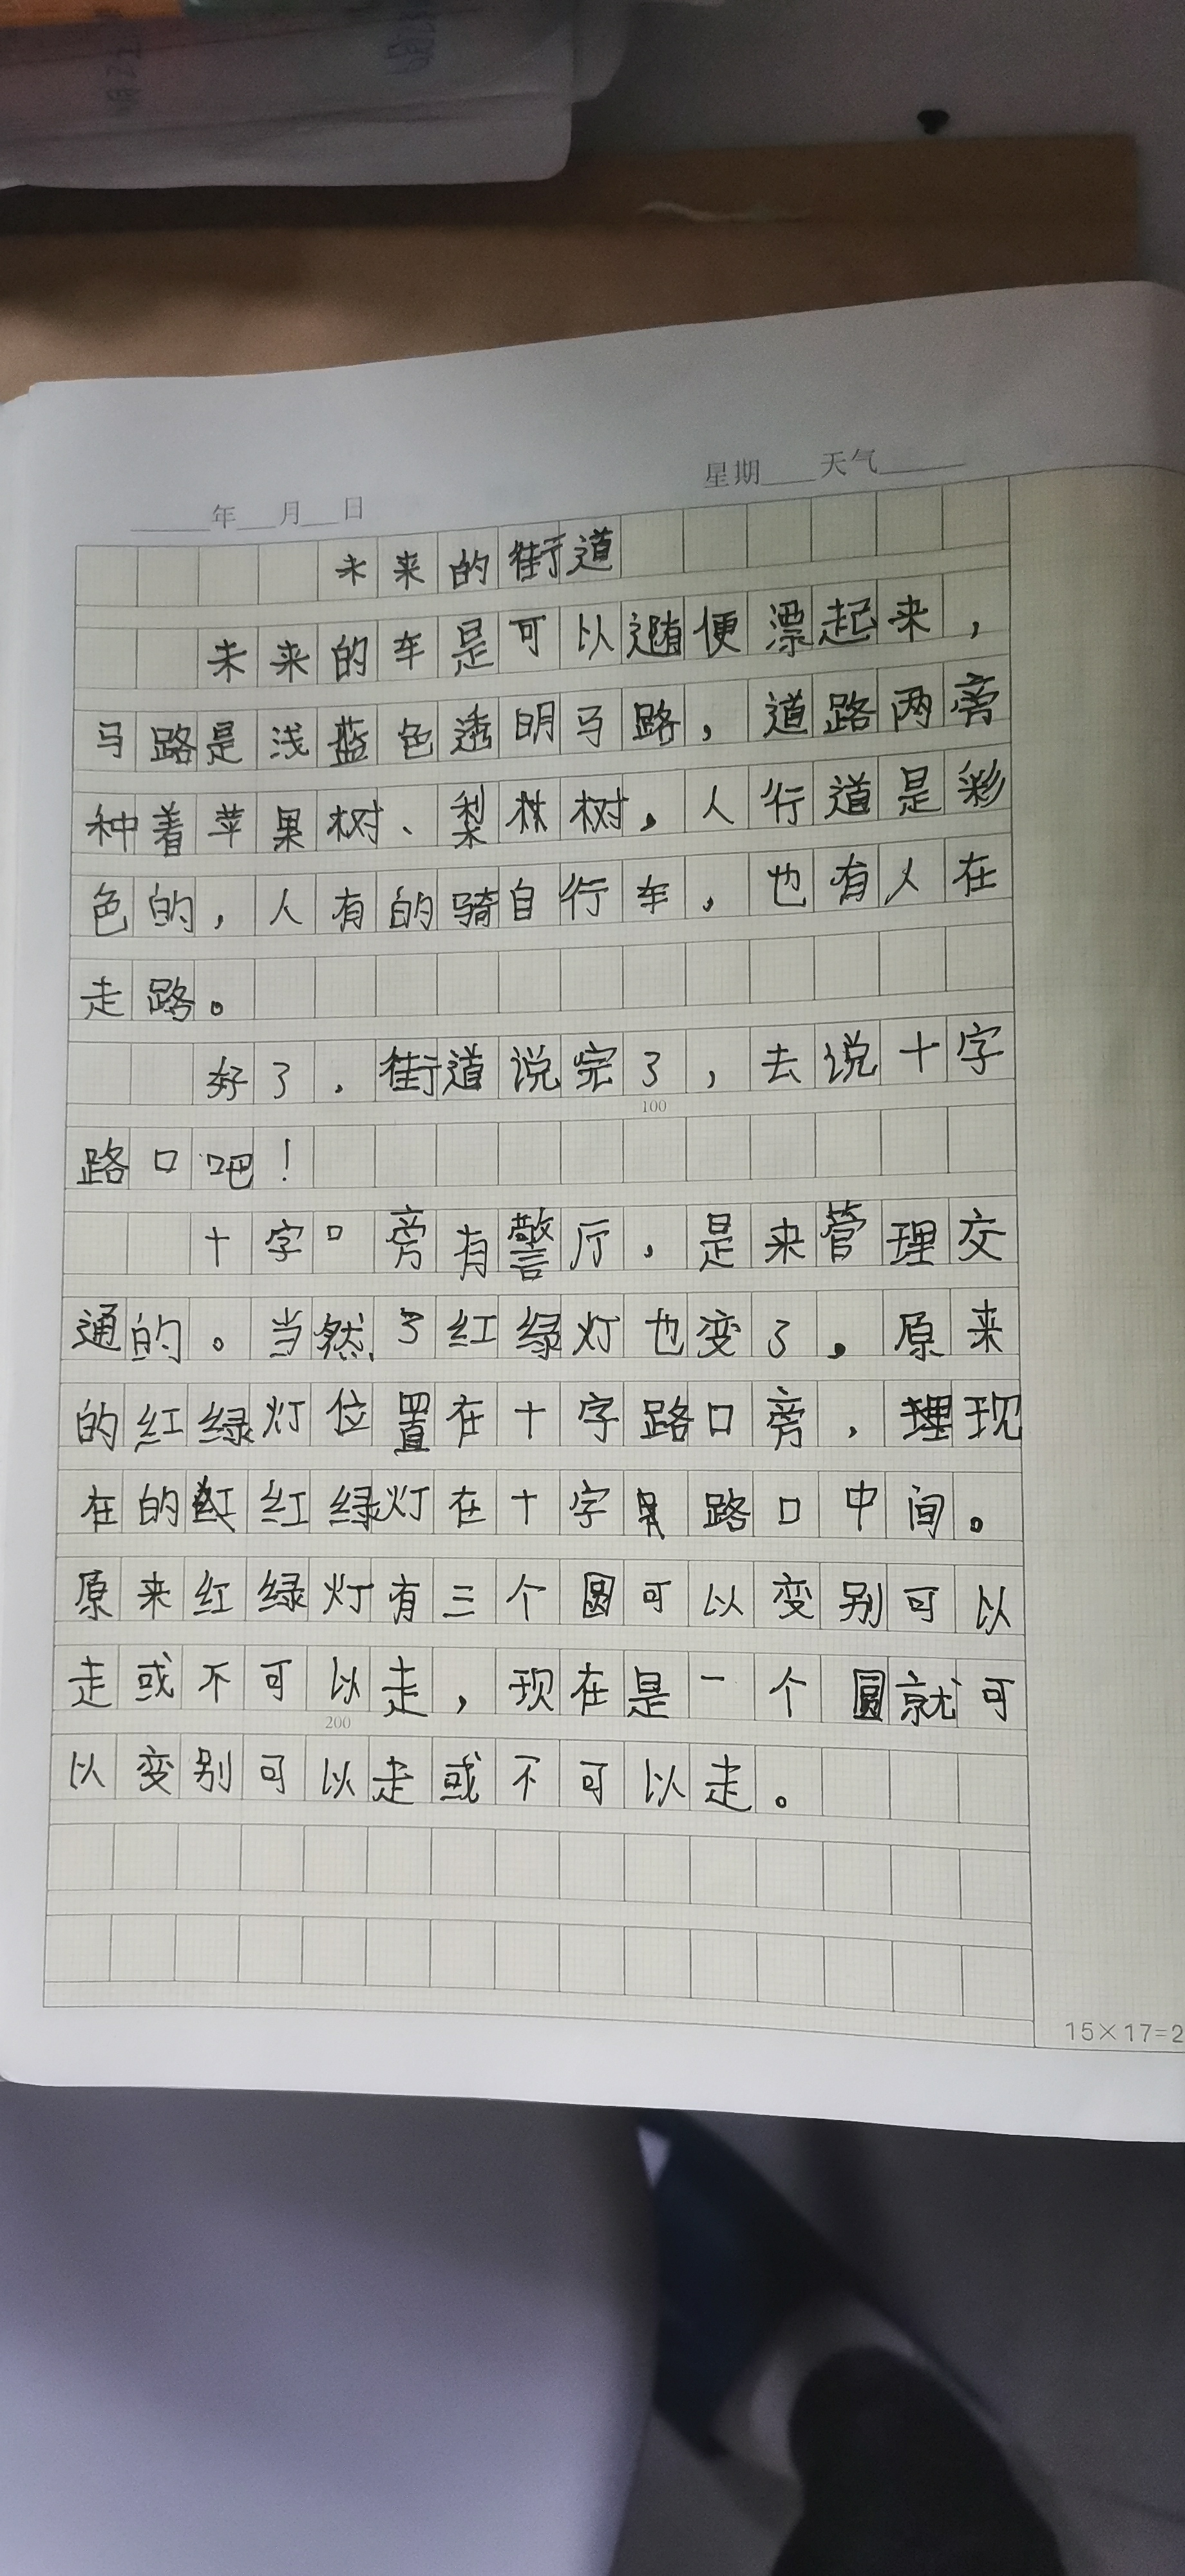 星期___天气______
______年___月___日
未来的街道
未来的车是可以随便漂起来，
马路是浅蓝色透明马路，道路两旁
种着苹果树、梨树，人行道是彩
色的，人有的骑自行车，也有人在
走路。
好了，街道说完了，去说十字
100
路口吧！
十字口旁有警厅，是来管理交
通的。当然了红绿灯也变了，原来
的红绿灯位置在十字路口旁，现
在的红绿灯在十字路口中间。
原来红绿灯有三个圆可以变别可以
走或不可以走，现在是一个圆就可
200
以变别可以走或不可以走。
15×17=2